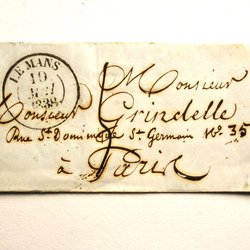 LE MANS
19
1839
Monsieur
Monsieur
Grindelle
Rue St. Dominique St. Germain No. 35
à Paris